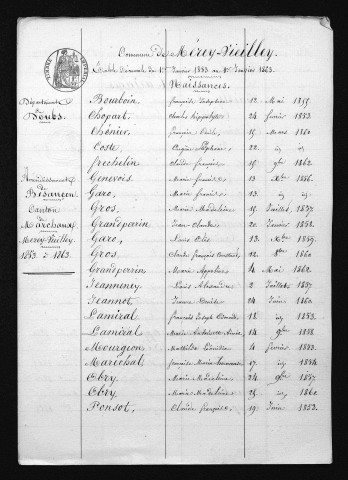 Commune de Mérey-Vieilley
Table Décennale du 1er Janvier 1853 au 1er Janvier 1863.
Naissances.
Département
du
Doubs.
Arrondissement
de
Besançon
Canton
de
Marchaux
Merey-Vieilley
1853 à 1863
Bourboin françois 12 Mai 1855.
Chopart Charles hippolyte 24 février 1853.
Chénier françois Emile 15 Mars 1860
Coste Eugène Stéphane 22 id id
frechelin Claude françois 15 9bre 1862
Genevois Marie 13 Xbre 1856.
Garo Marie 13 id
Gros Marie Madeleine 15 Juillet 1857
Grandperrin Jean Claude 20 Janvier 1858
Garo, 13 Xbre 1859.
Gros Claude françois Constant 12 8bre 1860
Grandperrin Marie Appoline 4 Mai 1862
Jeanneney Louis Alexandre 2 Juillet 1857
Jeannot 24 Juin 1860
Lamiral françois Joseph 18 id 1853.
Lamiral Marie Antoinette 14 9bre 1858
Mourgeon Mathilde 4 février 1853.
Marichal françoise Marie 17 id 1854
Obry Marie Madeleine 24 9bre 1857
Obry Marie Madeleine 25 id 1860
Ponsot Claude françois 19 Juin 1853.